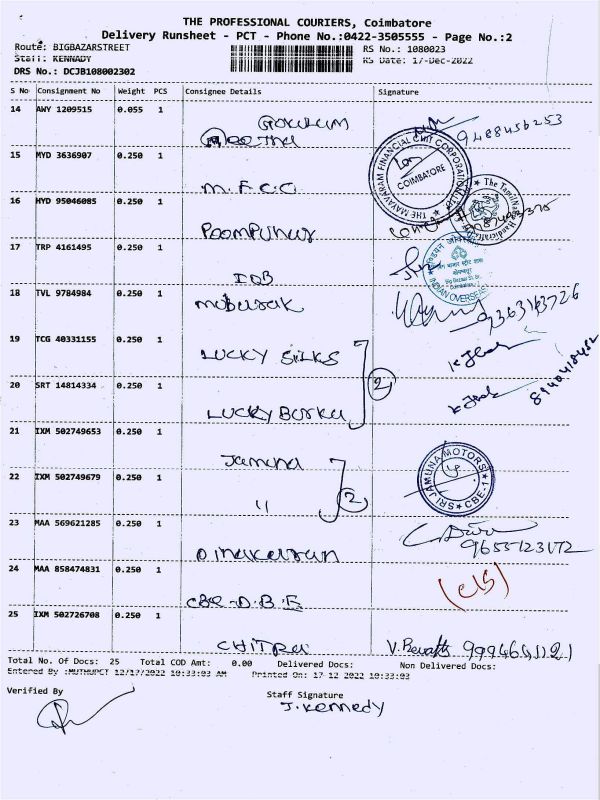 THE PROFESSIONAL COURIERS, Coimbatore
Delivery Runsheet - PCT - Phone No.:0422-3505555 - Page No.:2
Route: BIGBAZARSTREET
RS No.: 1080023
Staff: KENNADY
RS Date: 17-Dec-2022
DRS No.: DCJB108002302
S No Consignment No Weight PCS Consignee Details Signature
14 AWY 1209515 0.055 1 Gokulam
9488456253
15 MYD 3636907 0.250 1 M.F.C.C
THE MAYAVARAM FINANCIAL CHIT CORPORATION LTD
COIMBATORE
16 HYD 95046085 0.250 1 Poompuhur
The TamilNadu Handicrafts
17 TRP 4161495 0.250 1 IOB
INDIAN OVERSEAS
18 TVL 9784984 0.250 1 Mubarak
9363163726
19 TCG 40331155 0.250 1 LUCKY SILKS
20 SRT 14814334 0.250 1 LUCKY Burka
2
8940418482
21 IXM 502749653 0.250 1 Jamuna
22 IXM 502749679 0.250 1 "
2
SRI JAMUNA MOTORS
CBE-1
23 MAA 569621285 0.250 1 Dinakaran
9655123172
24 MAA 858474831 0.250 1 CBE-D.B.E
(C/S)
25 IXM 502726708 0.250 1 CHITRA
Total No. Of Docs: 25 Total COD Amt: 0.00 Delivered Docs: Non Delivered Docs:
Entered By :MUTHUPCT 12/17/2022 10:33:03 AM Printed On: 17-12-2022 10:33:03
Verified By
Staff Signature
J. Kennedy